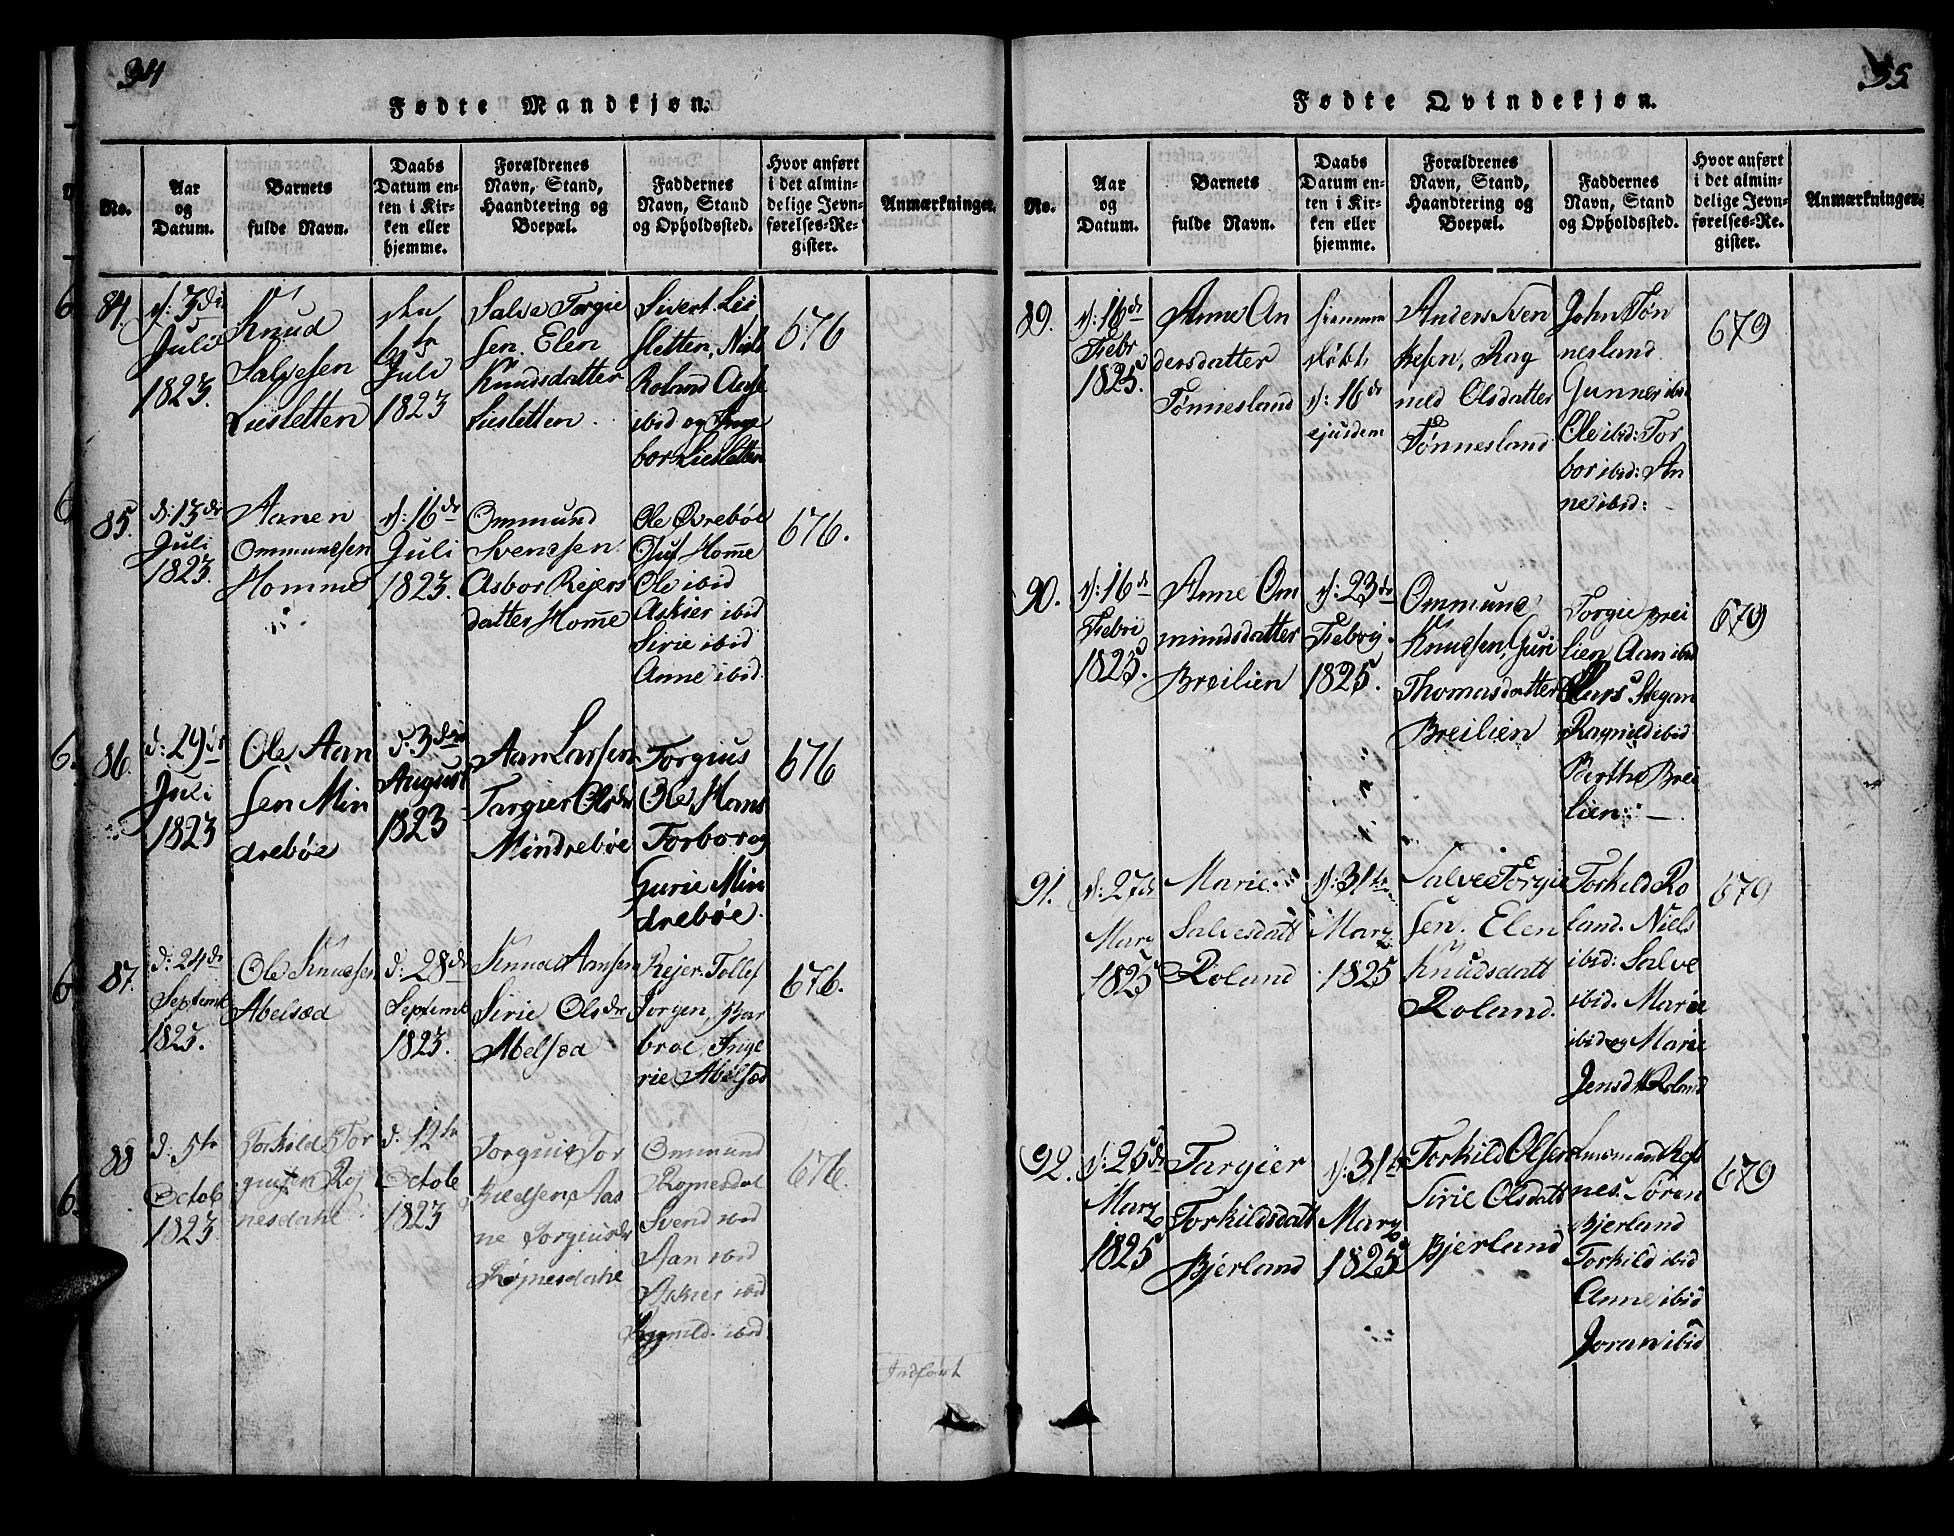 34
Fødte Mandkjøn.
No.
Aar
og
Datum.
Barnets
fulde Navn.
Daabs
Datum en-
ten i Kir-
ken eller
hjemme.
Forældrenes
Navn, Stand,
Haandtering og
Boepæl.
Faddernes
Navn, Stand
og Opholdssted.
Hvor anført
i det almin-
delige Jevn-
førelses-Re-
gister.
Anmærkninger.
84.
d: 3de
Juli
1823.
Knud
Salvesen
Liesletten
den
6te
Juli
1823
Salve Torgie
sen. Elen
Knudsdatter
Liesletten.
Sivert Lie
sletten, Niels
Roland Aase
ibid og Inge
bor Liesletten
676
85.
d: 13de
Juli
1823.
Aanen
Ommundsen
Homme
d: 16de
Juli
1823.
Ommund
Svensen
Asbor Rejers
datter Homme
Ole Øvrebøe
Ole ibid
Askier ibid
Sirie ibid
Anne ibid
676.
86.
d: 29de
Juli
1823
Ole Aan
sen Min
drebøe
d. 3die
August
1823
Aan Larsen
Targier Olsdr
Mindrebøe
Torgius
Ole, Hans
Torbor og
Gurie Min
drebøe.
676
87.
d: 24de
Septemb
1823.
Ole Knudsen
Abelsæd
d: 28de
Septemb
1823.
Knud Aansen
Sirie Olsdr
Abelsæd
Rejer, Tollef
Jorgen, Bar
broe, Inge
rie Abelsæd
676.
88
d: 5te
Octob
1823
Torkild Tor
giusen Røj
nesdahl
d: 12te
Octob
1823
Torguis Tor
kildsen, Aas
ne Torgiusdr
Røjnesdahl
Ommund
Røjnesdal
Svend ibid
Aan ibid
Askier ibid
Ragnild. ibid
676.
Indført
35
Fødte Qvindekjøn.
No.
Aar
og
Datum.
Barnets
fulde Navn.
Daabs
Datum en-
ten i Kir-
ken eller
hjemme.
Forældrenes
Navn, Stand,
Haandtering og
Boepæl.
Faddernes
Navn, Stand
og Opholdssted.
Hvor anført
i det almin-
delige Jevn-
førelses-Re-
gister.
Anmærkninger.
89.
d: 16de
Febr
1825.
Anne An
dersdatter
Tønnesland
hiemme
døbt
d: 16de
ejusdem
Anders Sven
kesen, Rag
nild Olsdatter
Tønnesland
John Tøn
nesland.
Gunner ibid
Ole ibid: Tor
bor ibid: An
ne ibid:
679
90.
d: 16de
Febr
1825.
Anne Om
mundsdatter
Breilien
d: 23de
Febr
1825.
Ommund
Knudsen, Guri
Thomasdatter
Breilien
Torgie Brei
lien Aan ibid
Lars Stegan
Ragnild ibid
Berthe Brei
lien:
679
91.
d: 27de
Marz
1825
Marie
Salvesdatt
Roland
d: 31te
Marz
1825
Salve Torgie
sen. Elen
Knudsdatt
Roland.
Torkild Ro
land. Niels
ibid: Salve
ibid. Marie
ibid og Marie
Jensd. Roland
679
92.
d: 25de
Marz
1825
Targier
Torkildsdatt
Bjerland
d: 31te
Marz
1825
Torkild Olsen
Sirie Olsdatt
Bjerland
nes. Søren
Bjerland
Torkild ibid
Anne ibid
Joran ibid
679